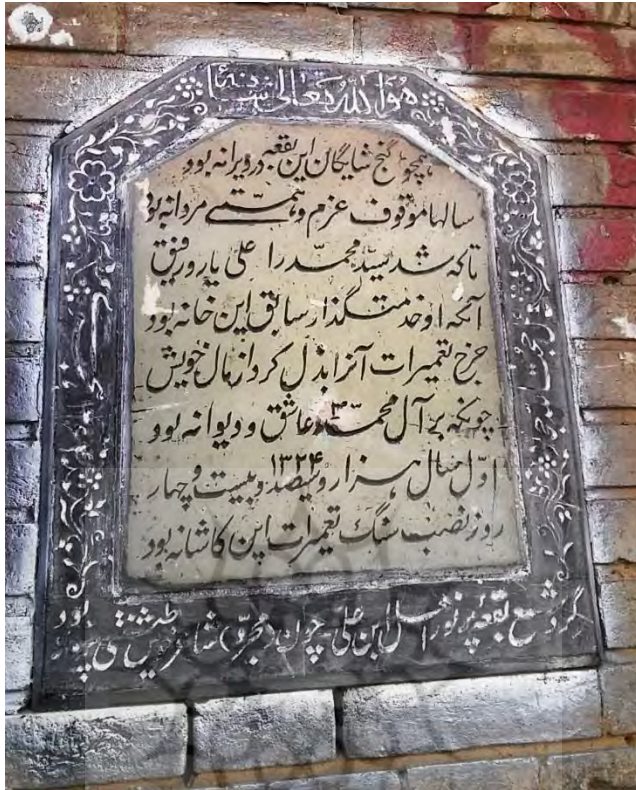 هو الله تعالی شأنه
همچو گنج شایگان این بقعه در ویرانه بود
سالها موقوف عزم و همتے مردانه بود
تا که شد سید محمد را علی یار و رفیق
آنکه او خدمتگذار سابق این خانه بود
خرج تعمیرات آنرا بذل کرد از مال خویش
چونکه بر آل محمد عاشق و دیوانه بود
۱۳۲۴
اول سال هزار و سیصد و بیست و چهار
روز نصب سنگ تعمیرات این کاشانه بود
گرد شمع بقعهٔ پر نور نسل ابن علی چون (مجرد) شاعر